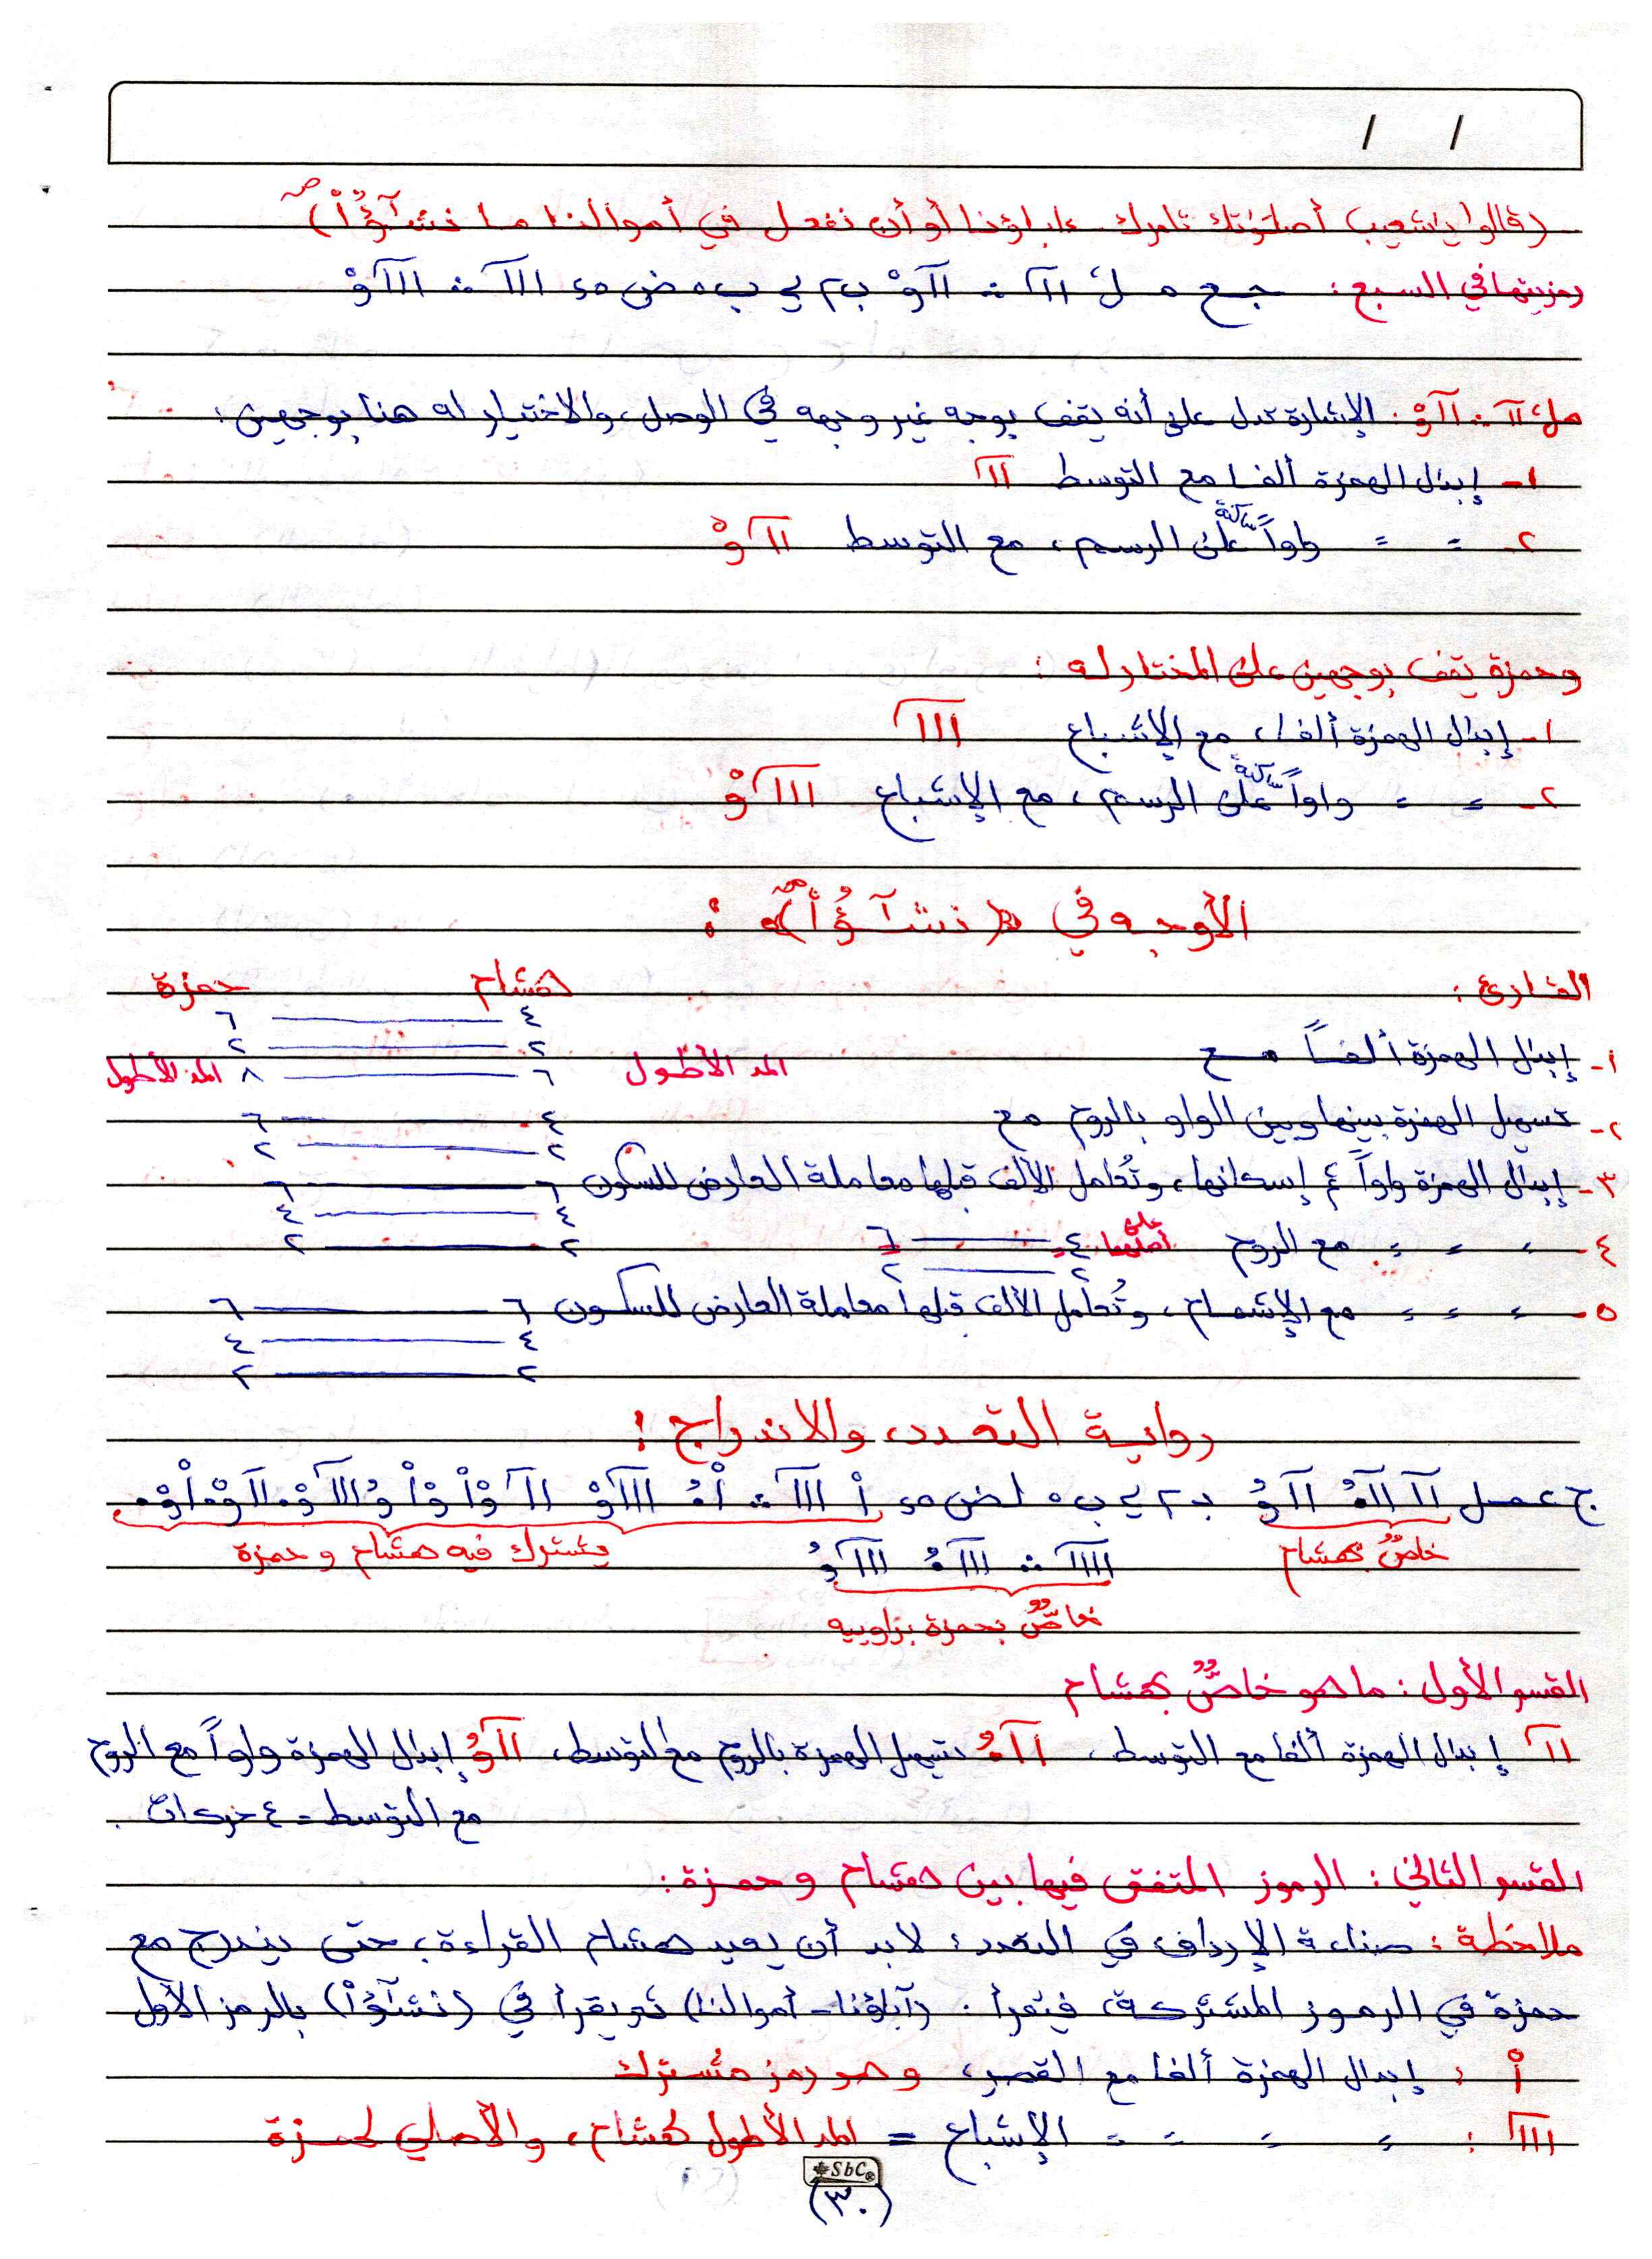 / /
(قالوا يٰشعيب أصلوٰتك تأمرك ءاباؤنا أو أن نفعل في أموالنا ما نشآؤُا۟) ص
رمزيتها في السبع : جـع مـ لـ ااآ ؞ ااآوْ ب٢ ي ب٥ ض ٥٥ اااآ ؞ اااآوْ
ااآ ؞ ااآوْ : الإشارة تدل على أنه يقف بوجه غير وجهه في الوصل، والاختيار له هنا بوجهين :
١- إبدال الهمزة ألفا مع التوسط ااآ
٢- = = واواً ساكنة على الرسم، مع التوسط ااآوْ
وحمزة يقف بوجهين على المختار له :
١- إبدال الهمزة ألفا، مع الإشباع اااآ
٢- = = واواً ساكنة على الرسم، مع الإشباع اااآوْ
الأوجه في ﴿نشآؤُا۟﴾ :
القارئ : هشام حمزة
٤ ـــــ ٦
١- إبدال الهمزة ألفاً مع ٢ ـــــ ٢
المد الأطول ٦ ـــــ ٨ المد الأطول
٢- تسهيل الهمزة بينها وبين الواو بالروم مع ٤ ـــــ ٦
٢ ـــــ ٢
٣- إبدال الهمزة واواً ثم إسكانها، وتُعامل الألف قبلها معاملة العارض للسكون ٦ ـــــ ٦
٤ ـــــ ٤
٢ ـــــ ٢
٤- = = = مع الروم على أصلهما ٤ ـــــ ٦
٢ ـــــ ٢
٥- = = = مع الإشمام، وتُعامل الألف قبلها معاملة العارض للسكون ٦ ـــــ ٦
٤ ـــــ ٤
٢ ـــــ ٢
رواية التعدد، والاندراج :
خاصٌّ بهشام يشترك فيه هشام و حمزة
خاصٌّ بحمزة براوييه
القسم الأول : ما هو خاصٌّ بهشام
ااآ إبدال الهمزة ألفا مع التوسط، ااآهُ تسهيل الهمزة بالروم مع التوسط، ااآوُ إبدال الهمزة واواً مع الروم
مع التوسط = ٤ حركات .
القسم الثاني : الرموز المتفق فيها بين هشام و حمزة :
ملاحظة : صناعة الإرداف في التعدد : لابد أن يعيد هشام القراءة، حتى يندرج مع
حمزة في الرموز المشتركة، فيقرأ : (آباؤنا - أموالنا) ثم يقرأ في (نشآؤا۟) بالرمز الأول
أْ : إبدال الهمزة ألفا مع القصر، وهو رمز مشترك
اااآ : = = = = الإشباع = المد الأطول لهشام، والأصلي لحمزة
SbC
(٣٠)